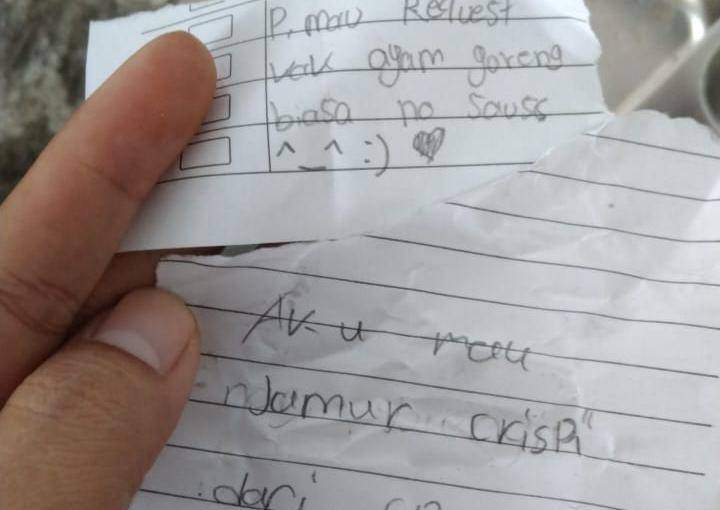 P. mau Request
yak ayam goreng
biasa no Sauss
^_^ :) ♥
Aku mau
nJamur crispi"
dari